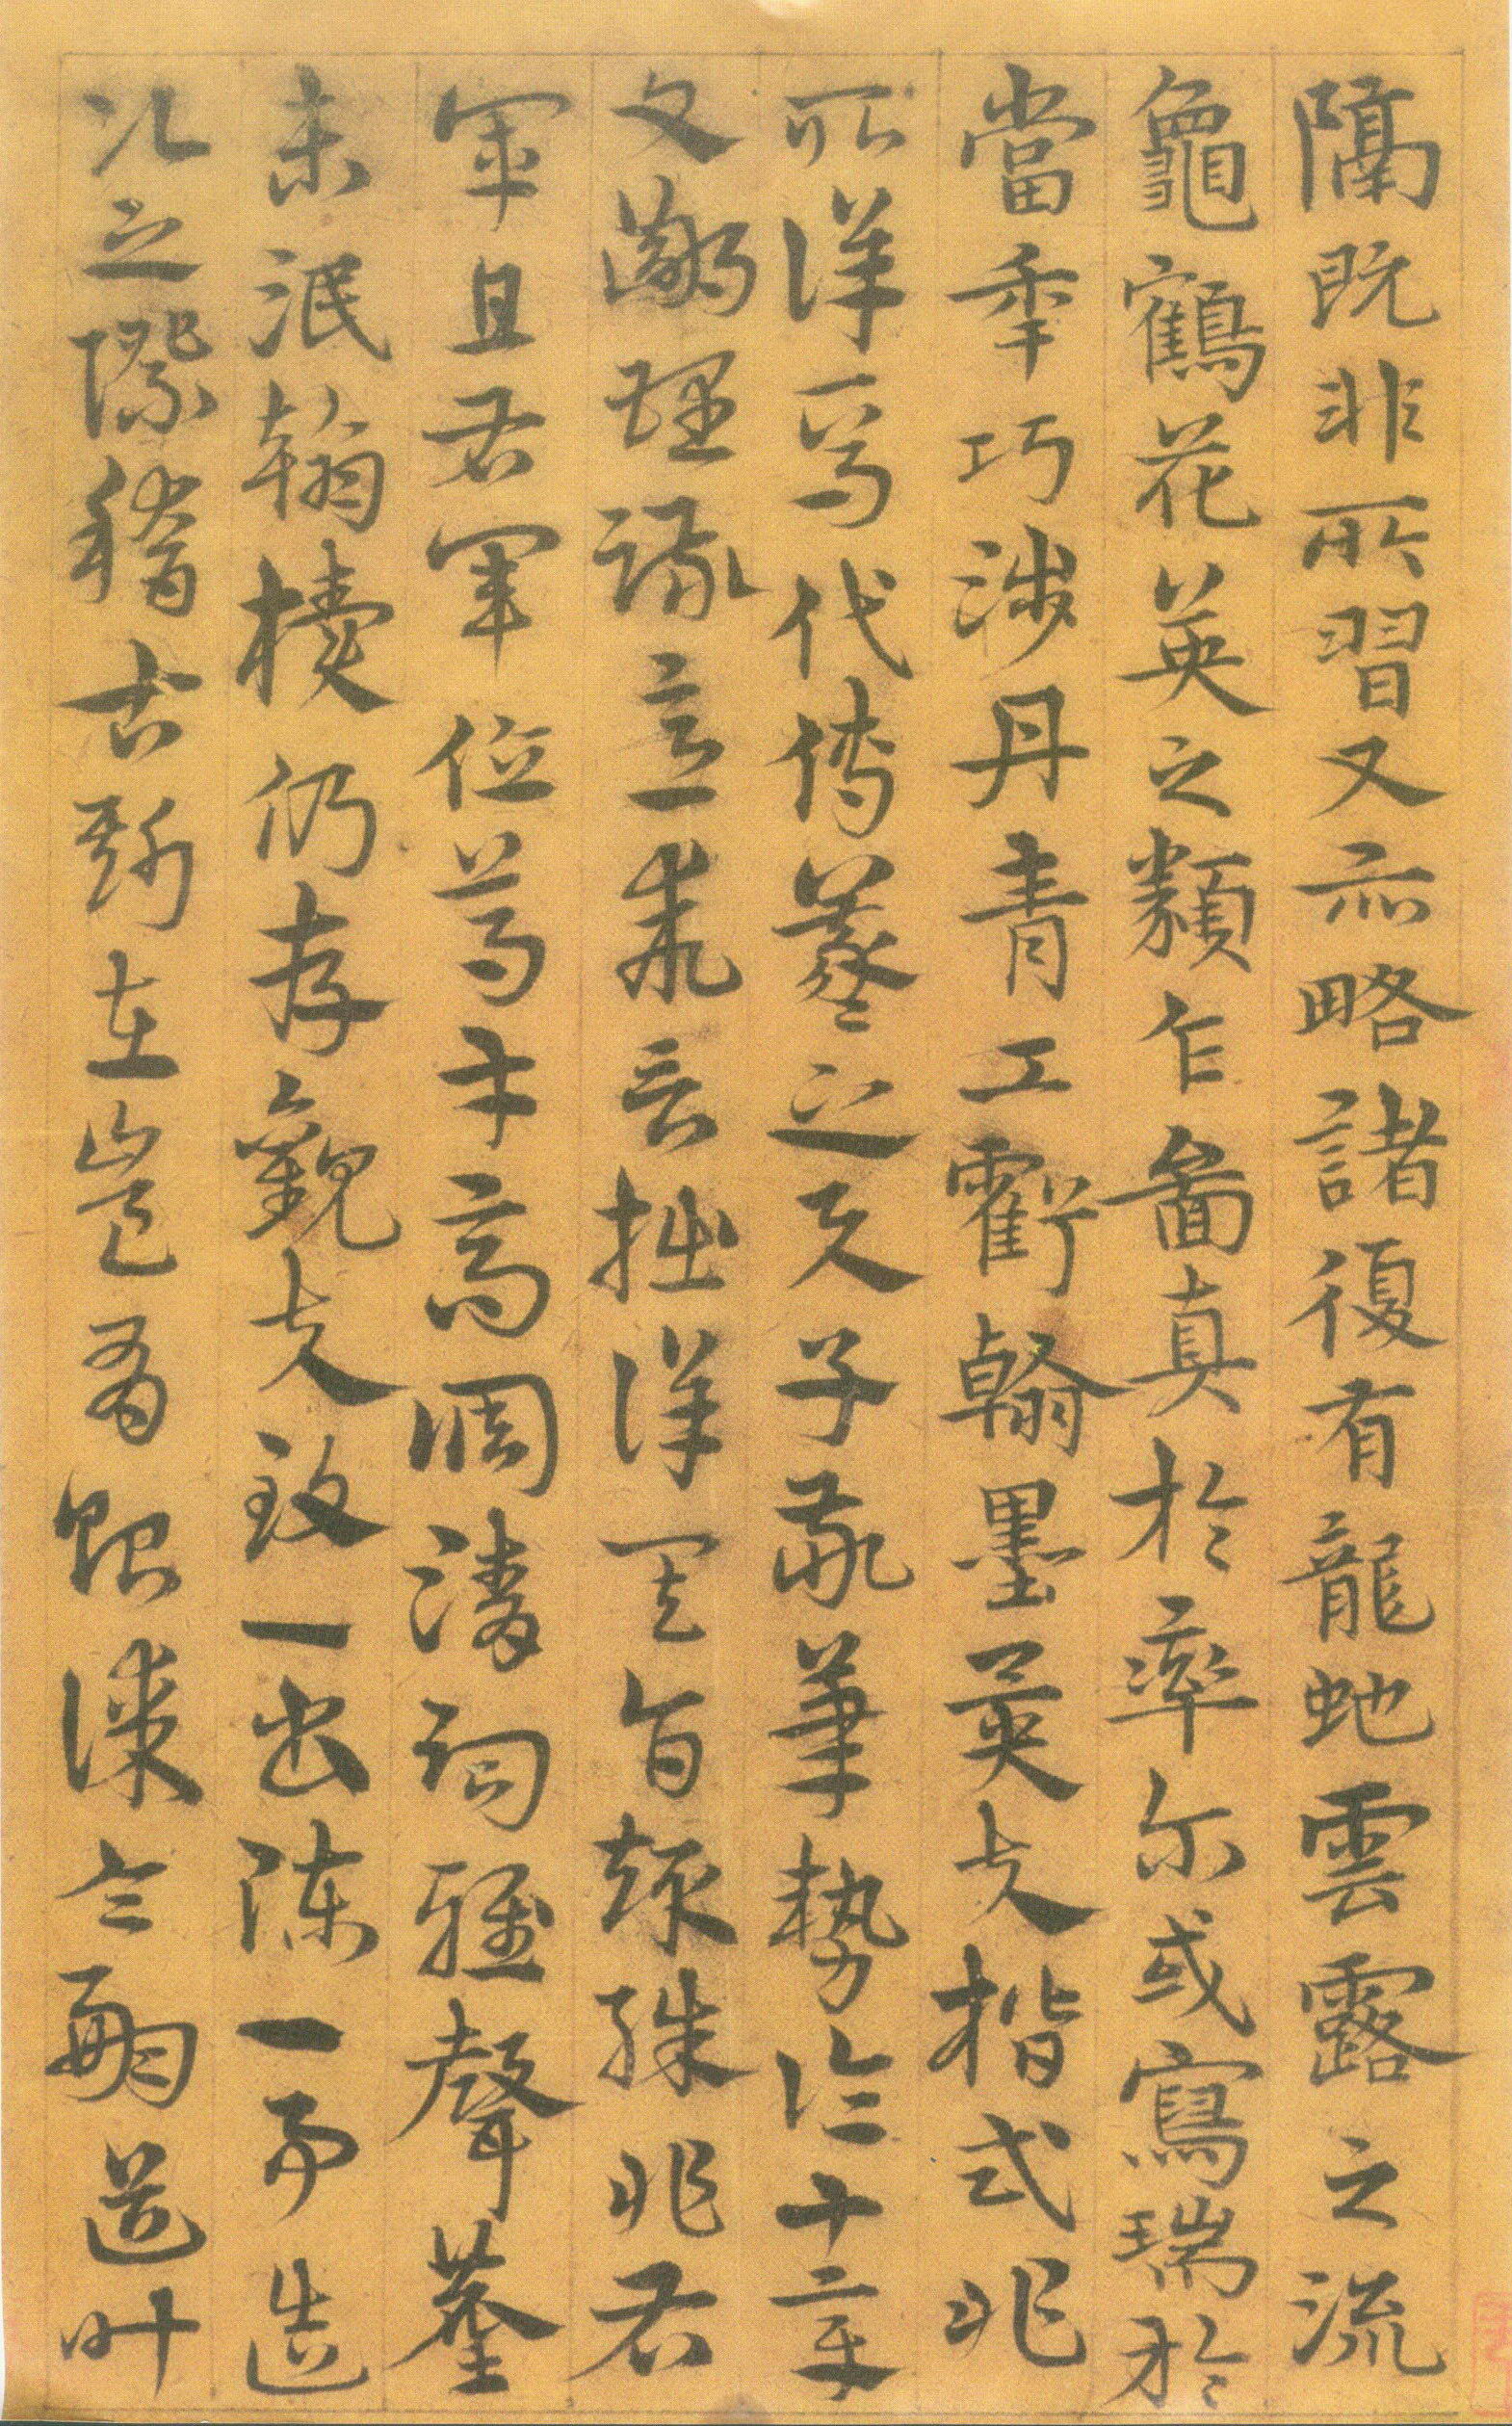 隔既非所習又亦略諸復有龍蛇雲露之流
龜鶴花英之類乍圖真於率尔或寫瑞於
當年巧涉丹青工虧翰墨異夫楷式非
所詳焉代傳羲之与子敬筆勢論十章
文鄙理疎意乖言拙詳其旨趣殊非右
軍且右軍位重才高調清詞雅聲塵
未泯翰櫝仍存觀夫致一書陳一事造
次之際稽古斯在豈有貽謀令嗣道叶